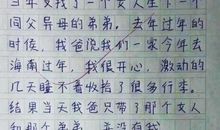 当年又找了一个女人生下一个
同父异母的弟弟。去年过年的
时候，我爸说我们一家今年去
海南过年，我很开心，激动的
几天睡不着收拾了很多行李。
结果当天我爸只带了那个女人
和那个弟弟，并没有我